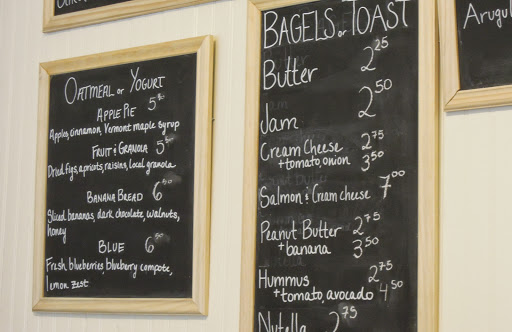 OATMEAL or YOGURT
APPLE PIE 5
Apples, cinnamon, Vermont maple syrup
FRUIT & GRANOLA 5
Dried figs, apricots, raisins, local granola
BANANA BREAD 6 50
Sliced bananas, dark chocolate, walnuts,
honey
BLUE 6 50
Fresh blueberries blueberry compote,
lemon zest
BAGELS or TOAST
Butter 2 25
Jam 2 50
Cream Cheese 2 75
+tomato, onion 3 50
Salmon & Cream cheese 7 00
Peanut Butter 2 75
+ banana 3 50
Hummus 2 75
+tomato, avocado 4 50
Nutella 2 75
Arugul